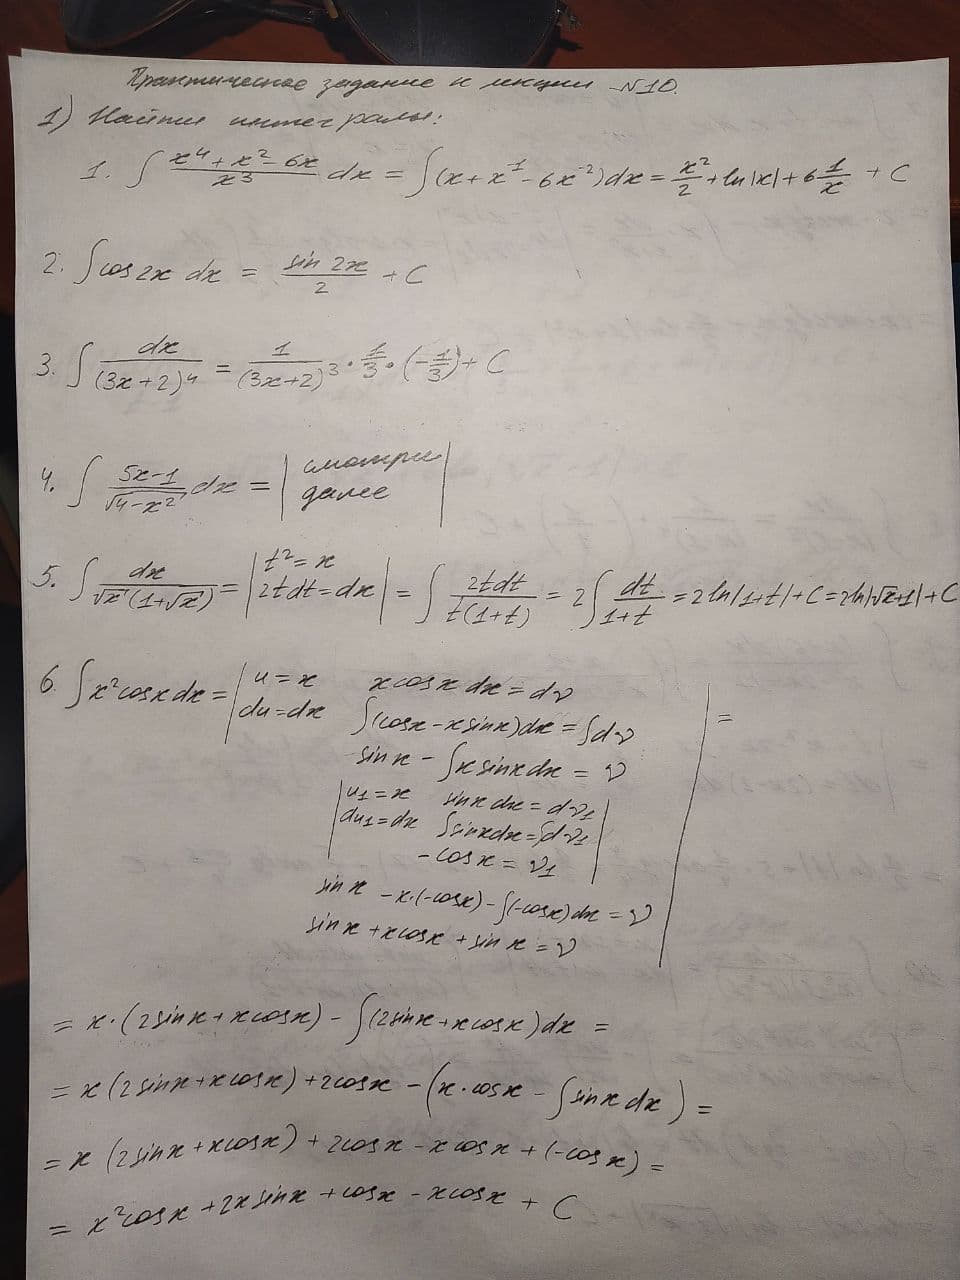 Практическое задание к лекции №10.
1) Найти интегралы:
1. ∫ (x⁴ + x² - 6x)/x³ dx = ∫(x + x⁻¹ - 6x⁻²)dx = x²/2 + ln|x| + 6 1/x + C
2. ∫ cos 2x dx = sin 2x / 2 + C
3. ∫ dx/(3x+2)⁴ = 1/(3x+2)³ · 1/3 · (-1/3) + C
4. ∫ (5x-1)/√(4-x²) dx = | смотри далее |
5. ∫ dx/(√x (1+√x)) = | t² = x 2tdt = dx | = ∫ 2tdt/(t(1+t)) = 2∫ dt/(1+t) = 2ln|1+t| + C = 2ln|√x+1| + C
6. ∫ x² cosx dx = | u = x x cosx dx = dv
du = dx ∫(cosx - x sinx)dx = ∫dv | =
sin x - ∫x sinx dx = v
| u₁ = x sinx dx = dv₁
du₁ = dx ∫sinx dx = ∫dv₁ |
-cos x = v₁
sin x - x·(-cosx) - ∫(-cosx)dx = v
sin x + x cosx + sin x = v
= x·(2sinx + x cosx) - ∫(2sinx + x cosx)dx =
= x(2sinx + x cosx) + 2cosx - (x·cosx - ∫sinx dx) =
= x (2sinx + x cosx) + 2cosx - x cosx + (-cosx) =
= x² cosx + 2x sinx + cosx - x cosx + C